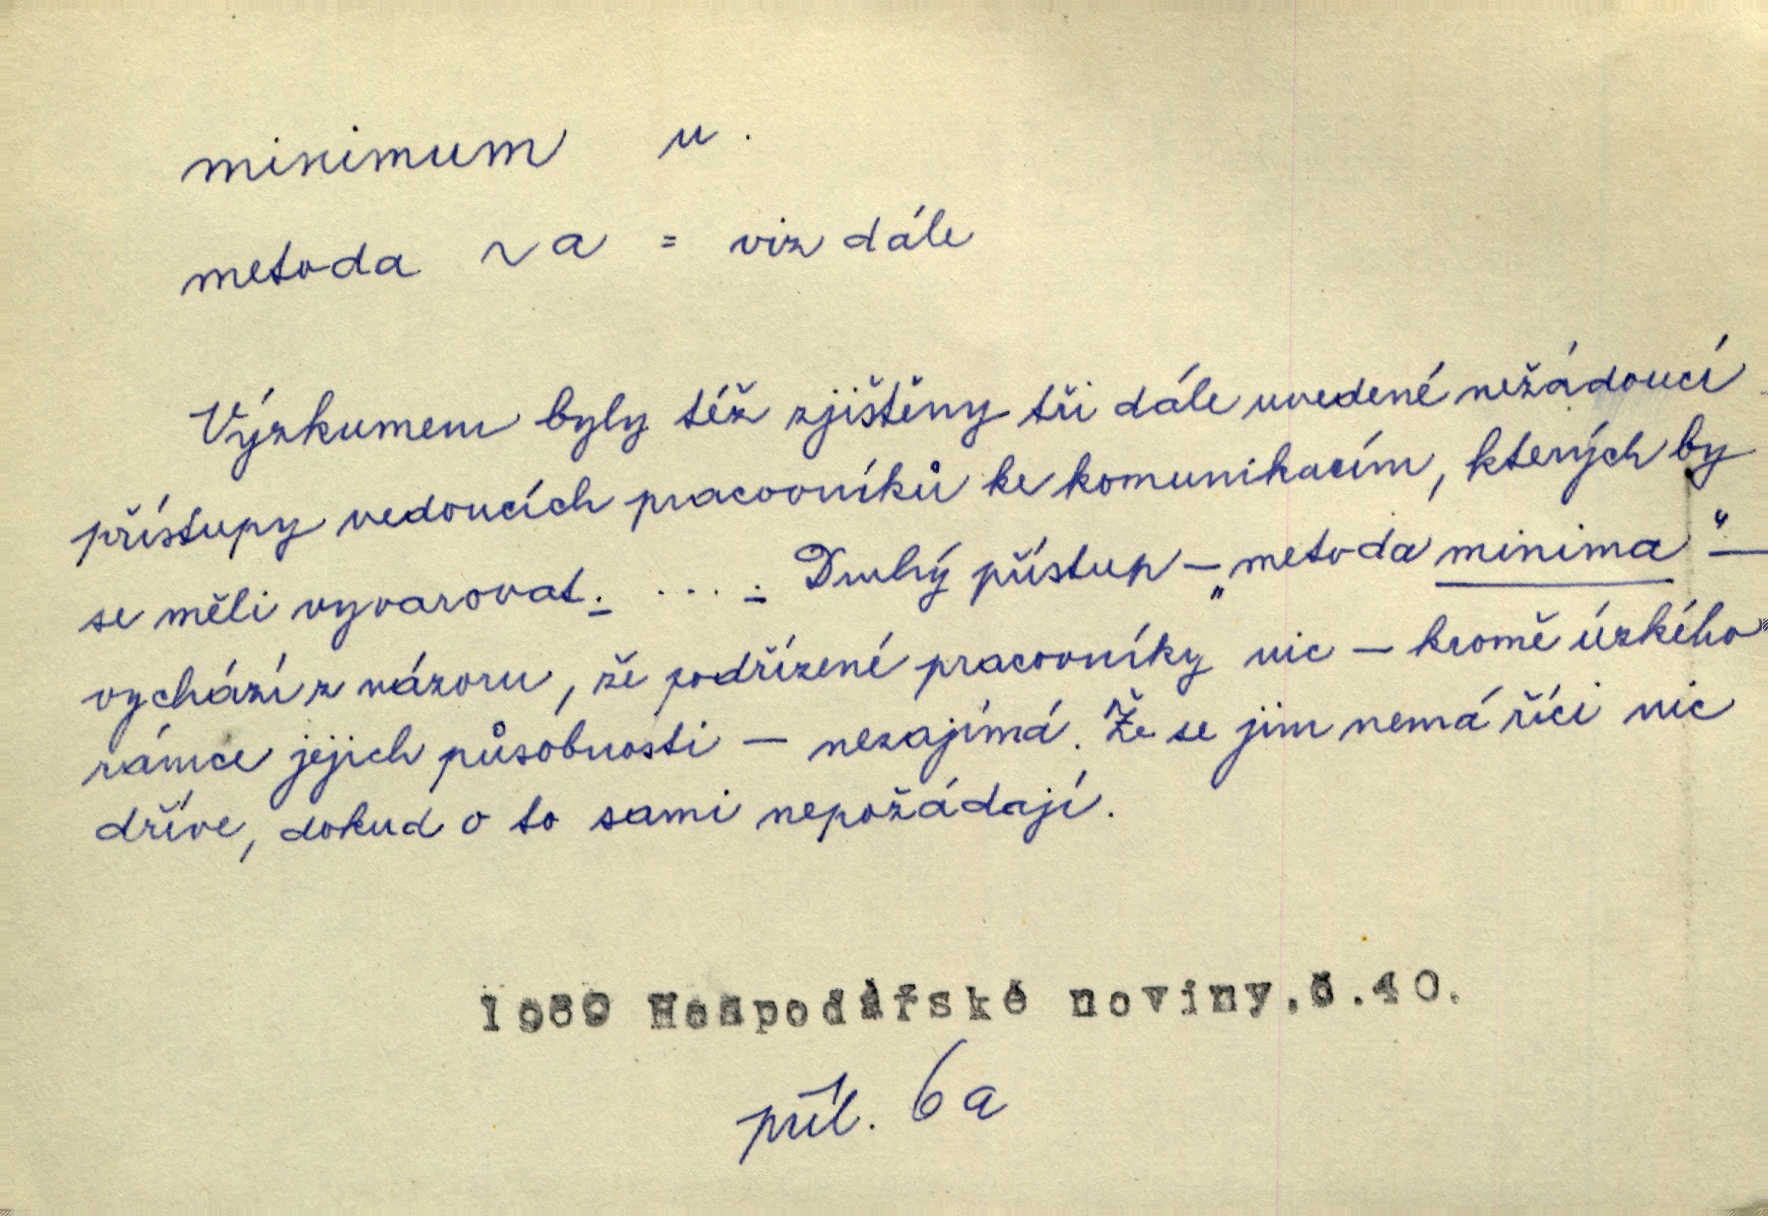 minimum n.
metoda ~a = viz dále
Výzkumem byly též zjištěny tři dále uvedené nežádoucí
přístupy vedoucích pracovníků ke komunikacím, kterých by
se měli vyvarovat. .... Druhý přístup – „metoda minima“ –
vychází z názoru, že podřízené pracovníky nic – kromě úzkého
rámce jejich působnosti – nezajímá. Že se jim nemá říci nic
dříve, dokud o to sami nepožádají.
Hospodářské noviny,č.40.
příl. 6a